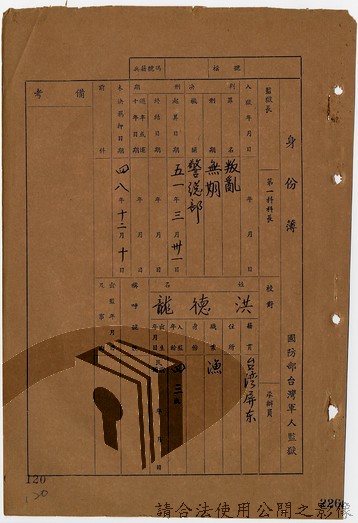 國防部台灣軍人監獄
身份簿
監獄長
第一科科長
校對
承辦員
號碼
兵籍號碼
入監年月日 年 月 日
判罪名 叛亂
刑期 無期
決機關 警總部
刑起算日期 五一年三月卅一日
終結日期 年 月 日
期
未決羈押日期 四八年十二月十日
前科
姓名 洪德龍
籍貫 台灣屏东
住所
職業 漁
身份
入監年齡 四二歲
出生年月日
備考
120
120
220
請合法使用公開之影像